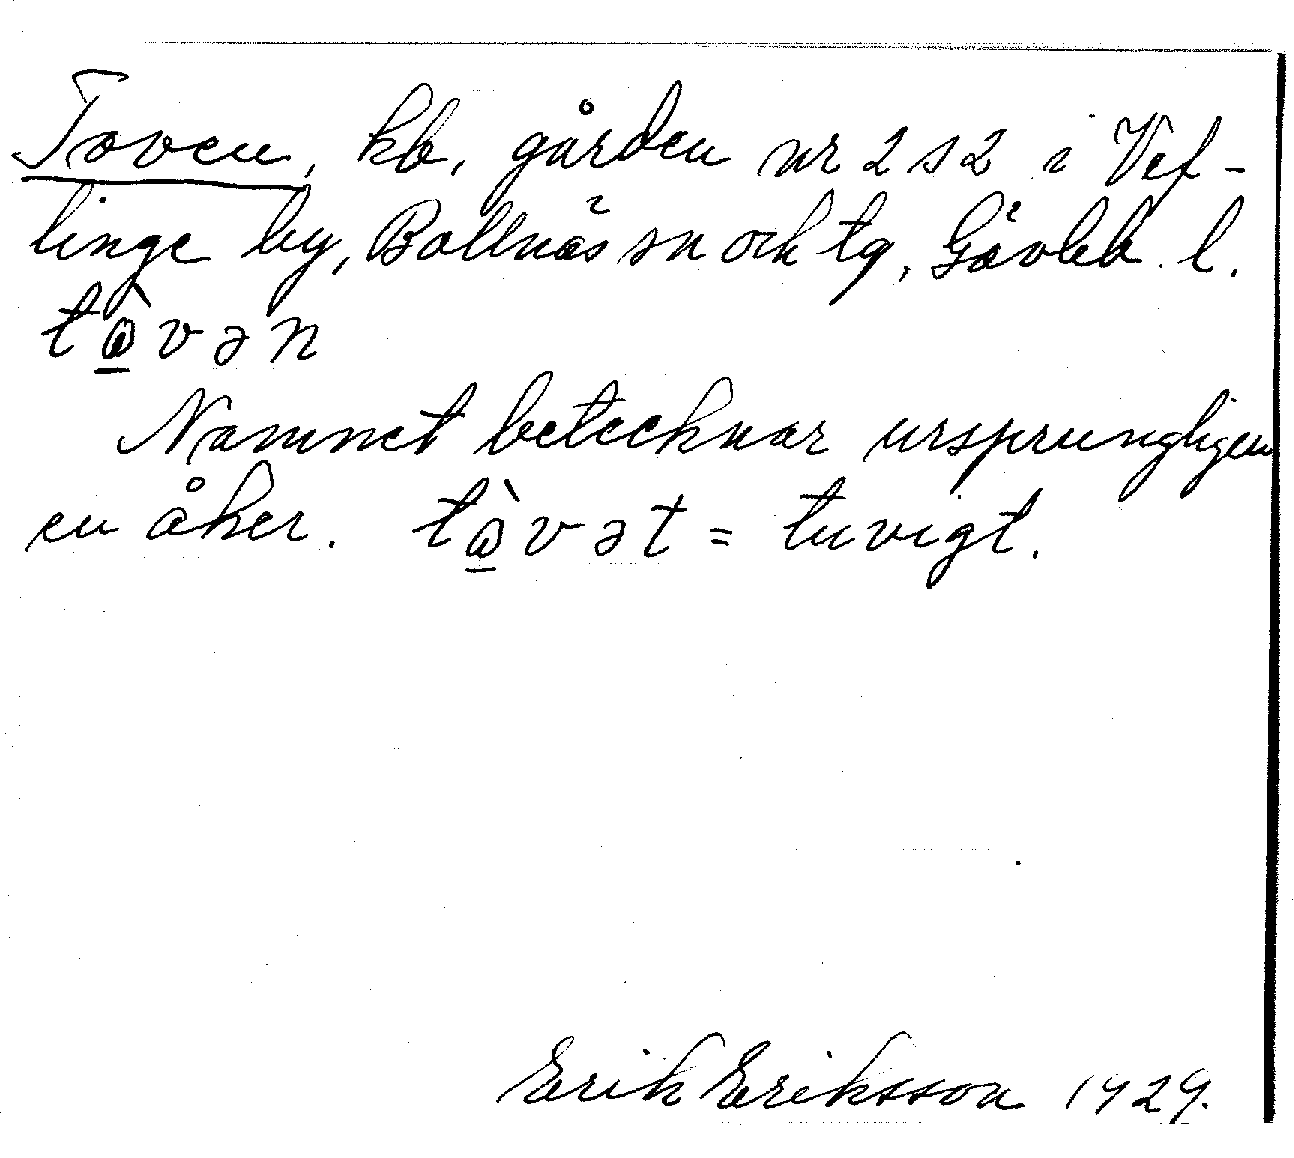 Toven, kb, gården nr 2 s 2 i Vef-
linge by, Bollnäs sn och tg, Gävleb. l.
tòvən
Namnet betecknar ursprungligen
en åker. tòvət = tuvigt.
Erik Eriksson 1929.